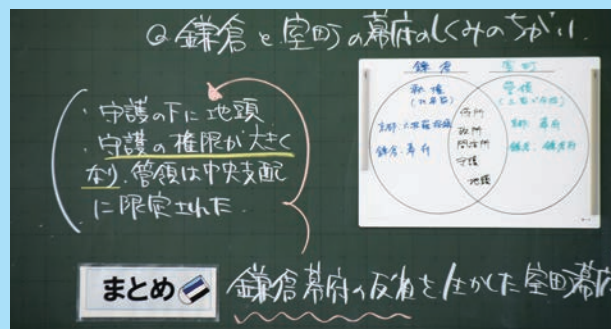 Q 鎌倉と室町の幕府のしくみのちがい
・守護の下に地頭
・守護の権限が大きく
なり、管領は中央支配
に限定された
鎌倉
執権
京都:六波羅探題
鎌倉:幕府
侍所
政所
問注所
守護
地頭
室町
管領
京都:幕府
鎌倉:鎌倉府
まとめ
鎌倉幕府の反省を生かした室町幕府